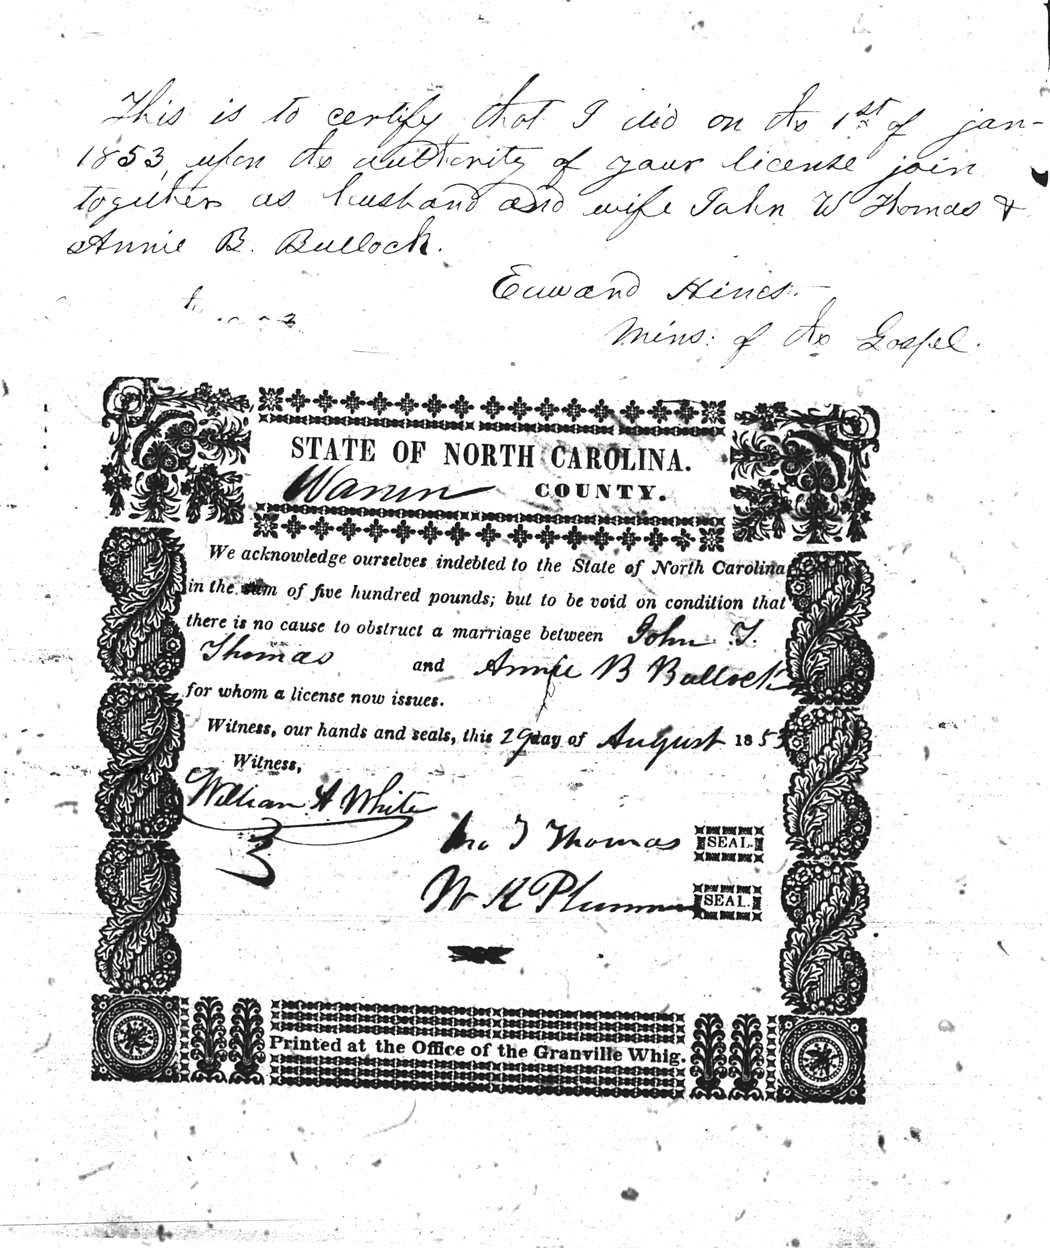 This is to certify that I did on the 1st of jan-
1853, upon the authority of your license join
together as husband and wife John W Thomas &
Annie B. Bullock.
Edward Hines.
Mins: of the Gospel.
STATE OF NORTH CAROLINA.
Warren COUNTY.
We acknowledge ourselves indebted to the State of North Carolina
in the sum of five hundred pounds; but to be void on condition that
there is no cause to obstruct a marriage between John T.
Thomas and Annie B Bullock
for whom a license now issues.
Witness, our hands and seals, this 29 day of August 1853
Witness,
William A White
Jno T Thomas SEAL.
W K Plummer SEAL.
Printed at the Office of the Granville Whig.